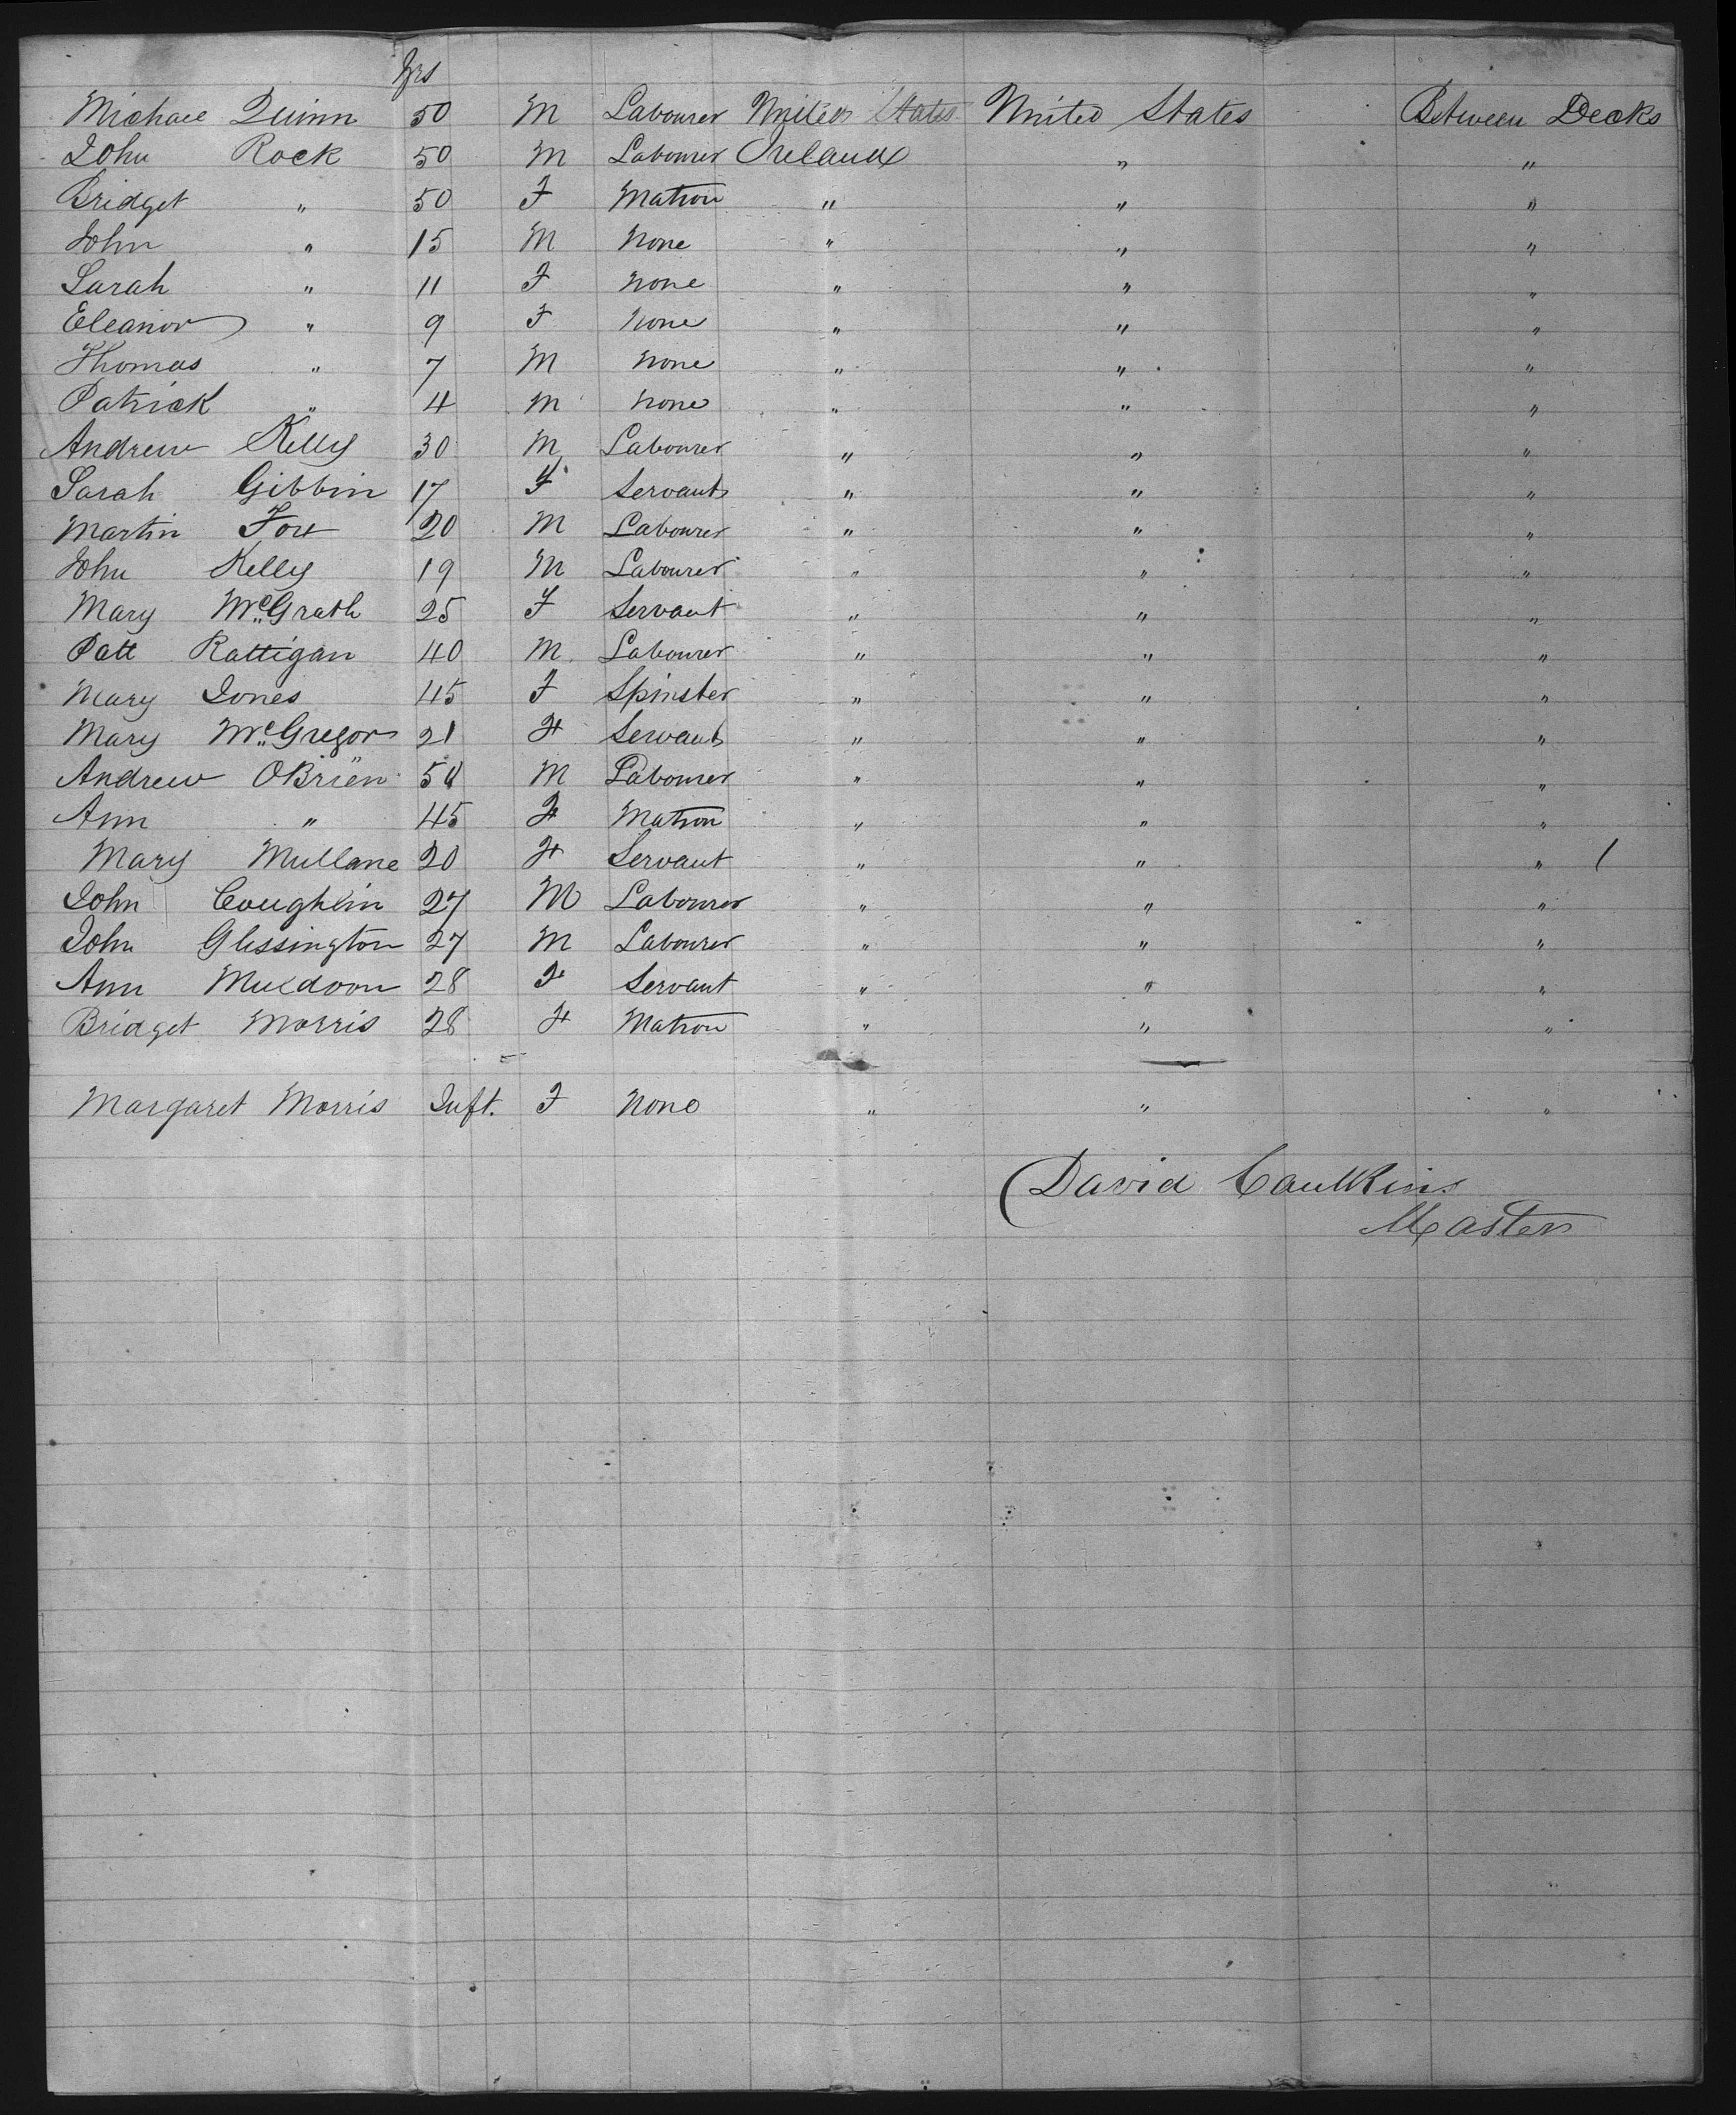 Yrs
Michael Quinn 50 M Labourer United States United States Between Decks
John Rock 50 M Labourer Ireland " "
Bridget " 50 F Matron " " "
John " 15 M None " " "
Sarah " 11 F None " " "
Eleanor " 9 F None " " "
Thomas " 7 M None " " "
Patrick " 4 M None " " "
Andrew Kelly 30 M Labourer " " "
Sarah Gibbin 17 F Servant " " "
Martin Fox 20 M Labourer " " "
John Kelly 19 M Labourer " " "
Mary McGrath 25 F Servant " " "
Patt Rattigan 40 M Labourer " " "
Mary Jones 45 F Spinster " " "
Mary McGregor 21 F Servant " " "
Andrew OBrien M Labourer " " "
Ann " 45 F Matron " " "
Mary Mullane 20 F Servant " " "
John Coughlin 27 M Labourer " " "
John Glessington 27 M Labourer " " "
Ann Muldoon 28 F Servant " " "
Bridget Morris 28 F Matron " " "
Margaret Morris Inft. F None " " "
David Caulkins
Master